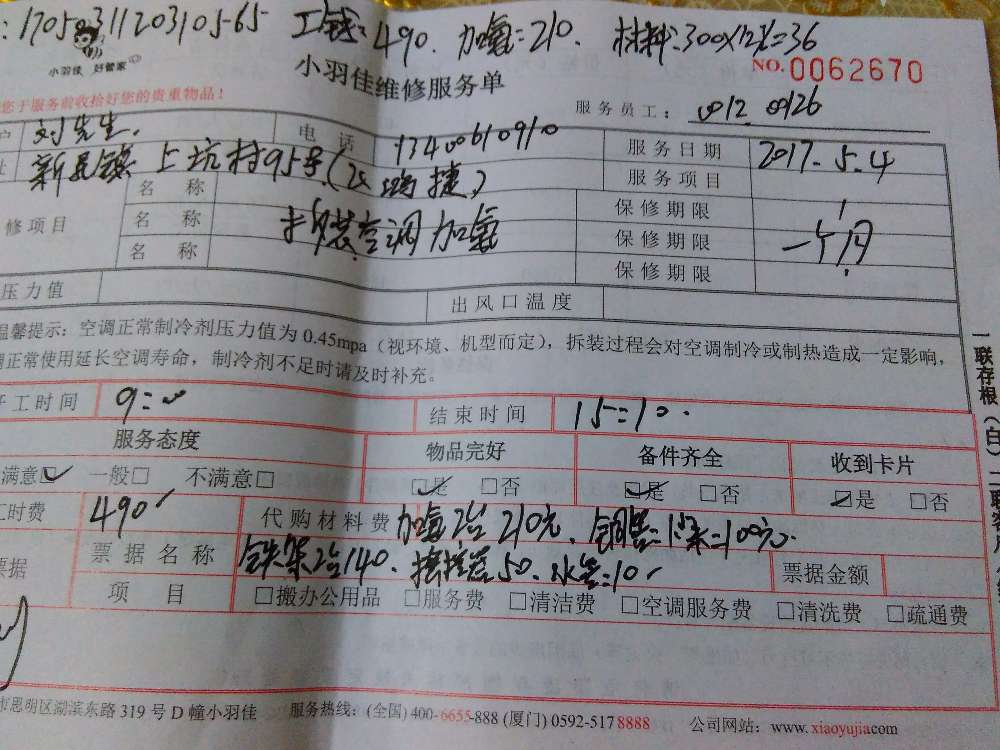 : 17050311203105-65 工钱:490. 加氟:210. 材料:300×12%=36
小羽佳 好管家
小羽佳维修服务单
NO.0062670
您于服务前收拾好您的贵重物品！
服务员工： 0012 0126
户 刘先生. 电话 13400610910 服务日期 2017.5.4
址 新圩镇 上坑村95号( 瑞捷) 服务项目
修项目 名称 保修期限
名称 拆装空调 加氟 保修期限 一个月
名称 保修期限
压力值 出风口温度
温馨提示：空调正常制冷剂压力值为 0.45mpa（视环境、机型而定），拆装过程会对空调制冷或制热造成一定影响，
调正常使用延长空调寿命，制冷剂不足时请及时补充。
开工时间 9:00 结束时间 15:10.
服务态度 物品完好 备件齐全 收到卡片
满意☑ 一般□ 不满意□ ☑是 □否 ☑是 □否 ☑是 □否
工时费 490 代购材料费 加氟2台210元. 铜管:1米=100元.
票据 票据名称 铁架2台140. 50. 水管=10 票据金额
项目 □搬办公用品 □服务费 □清洁费 □空调服务费 □清洗费 □疏通费
市思明区湖滨东路 319 号 D 幢小羽佳 服务热线：(全国) 400-6655-888 (厦门) 0592-517 8888 公司网站：www.xiaoyujia.com
一联存根（白）二联